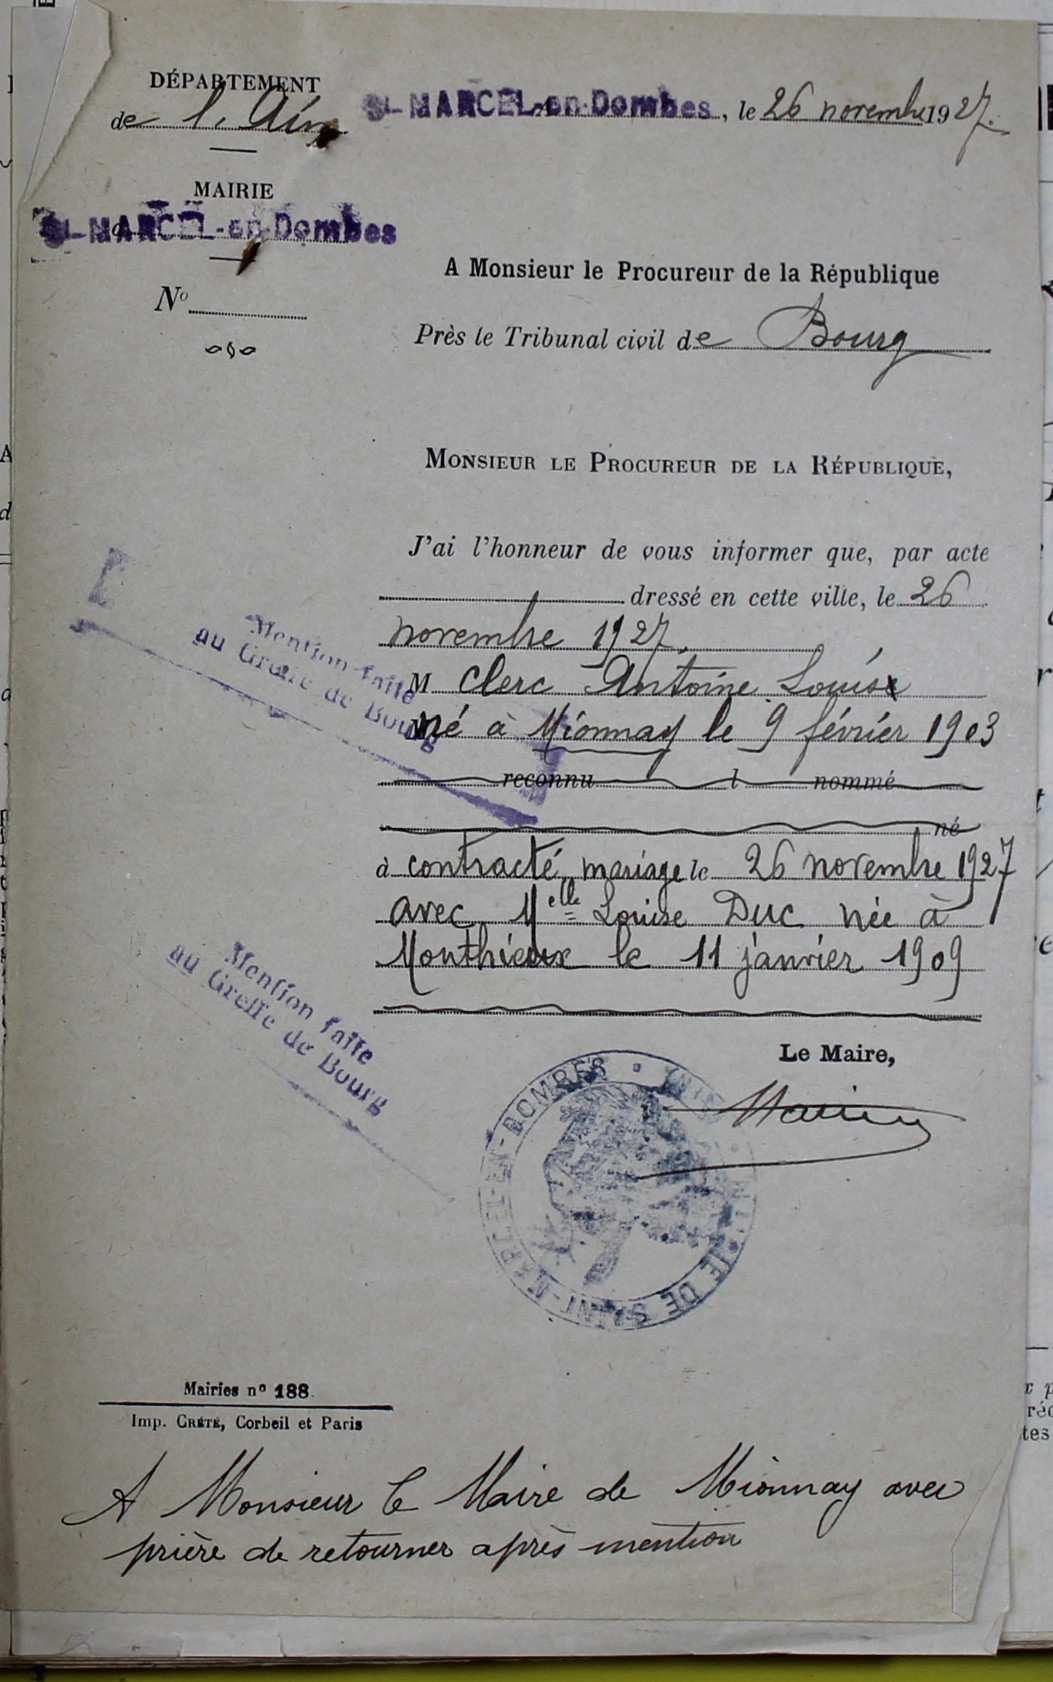 DÉPARTEMENT
de l'Ain
St-MARCEL-en-Dombes, le 26 novembre 1927.
MAIRIE
St-MARCEL-en-Dombes
No
A Monsieur le Procureur de la République
Près le Tribunal civil de Bourg
MONSIEUR LE PROCUREUR DE LA RÉPUBLIQUE,
J'ai l'honneur de vous informer que, par acte
dressé en cette ville, le 26
novembre 1927,
M Clerc Antoine Louis
né à Mionnay le 9 février 1903
reconnu l nommé
né
à contracté mariage le 26 novembre 1927
avec Melle Louise Duc née à
Monthieux le 11 janvier 1909
Mention faite
au Greffe de Bourg
Mention faite
au Greffe de Bourg
Le Maire,
MAIRIE DE SAINT-MARCEL-EN-DOMBES
Mairies no 188.
Imp. CRÉTÉ, Corbeil et Paris
A Monsieur le Maire de Mionnay avec
prière de retourner après mention